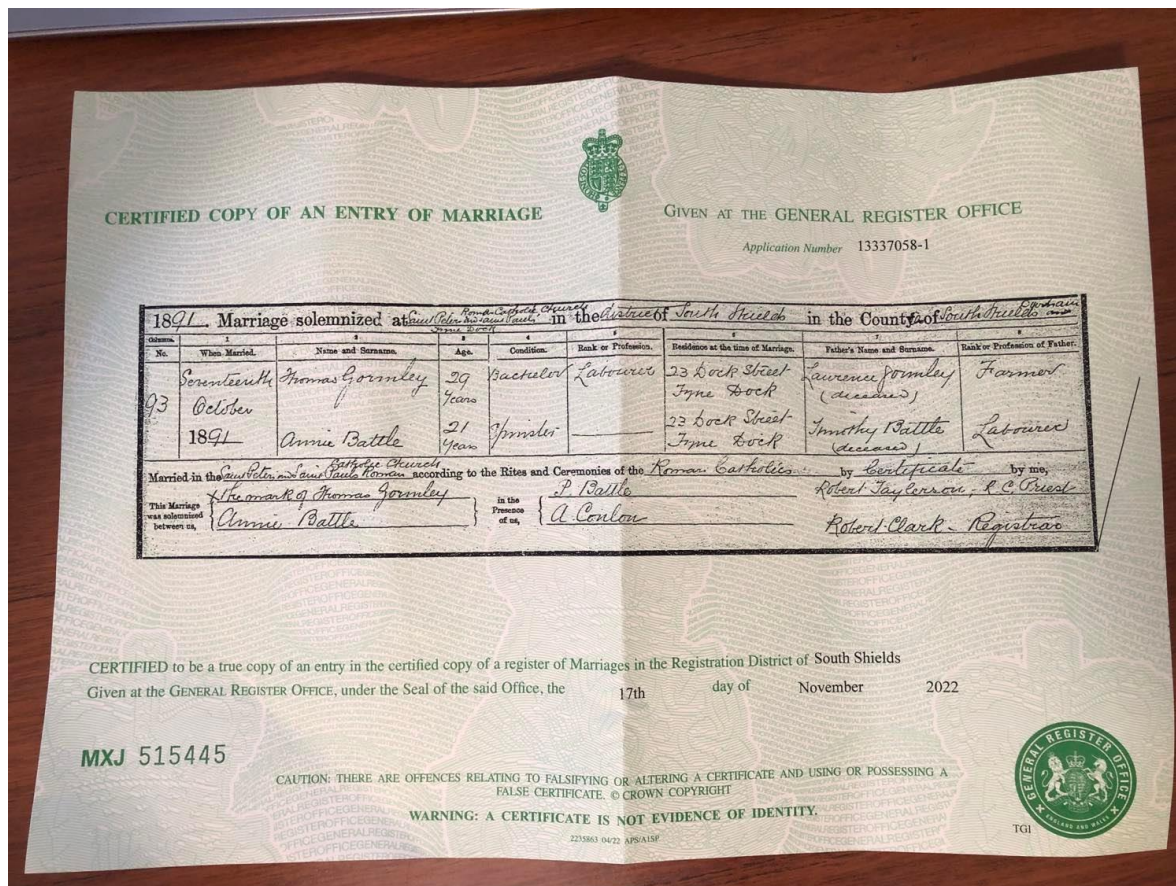 CERTIFIED COPY OF AN ENTRY OF MARRIAGE
GIVEN AT THE GENERAL REGISTER OFFICE
Application Number 13337058-1
1891. Marriage solemnized at Saint Peter and Saint Pauls Roman Catholic Church Tyne Dock in the District of South Shields in the County of South Shields Durham
Columns. 1 2 3 4 5 6 7 8
No. When Married. Name and Surname. Age. Condition. Rank or Profession. Residence at the time of Marriage. Father's Name and Surname. Rank or Profession of Father.
93 Seventeenth October 1891 Thomas Gormley 29 Years Bachelor Labourer 23 Dock Street Tyne Dock Laurence Gormley (deceased) Farmer
Annie Battle 21 Years Spinster 23 Dock Street Tyne Dock Timothy Battle (deceased) Labourer
Married in the Saint Peter and Saint Pauls Roman Catholic Church according to the Rites and Ceremonies of the Roman Catholics by Certificate by me,
This Marriage was solemnized between us, X the mark of Thomas Gormley in the Presence of us, P. Battle Robert Taylerson, R.C. Priest
Annie Battle A. Conlon Robert Clark - Registrar
CERTIFIED to be a true copy of an entry in the certified copy of a register of Marriages in the Registration District of South Shields
Given at the GENERAL REGISTER OFFICE, under the Seal of the said Office, the 17th day of November 2022
MXJ 515445
CAUTION: THERE ARE OFFENCES RELATING TO FALSIFYING OR ALTERING A CERTIFICATE AND USING OR POSSESSING A
FALSE CERTIFICATE. © CROWN COPYRIGHT
WARNING: A CERTIFICATE IS NOT EVIDENCE OF IDENTITY.
2235863 04/22 APS/A15F
TGI
GENERAL REGISTER OFFICE
ENGLAND AND WALES